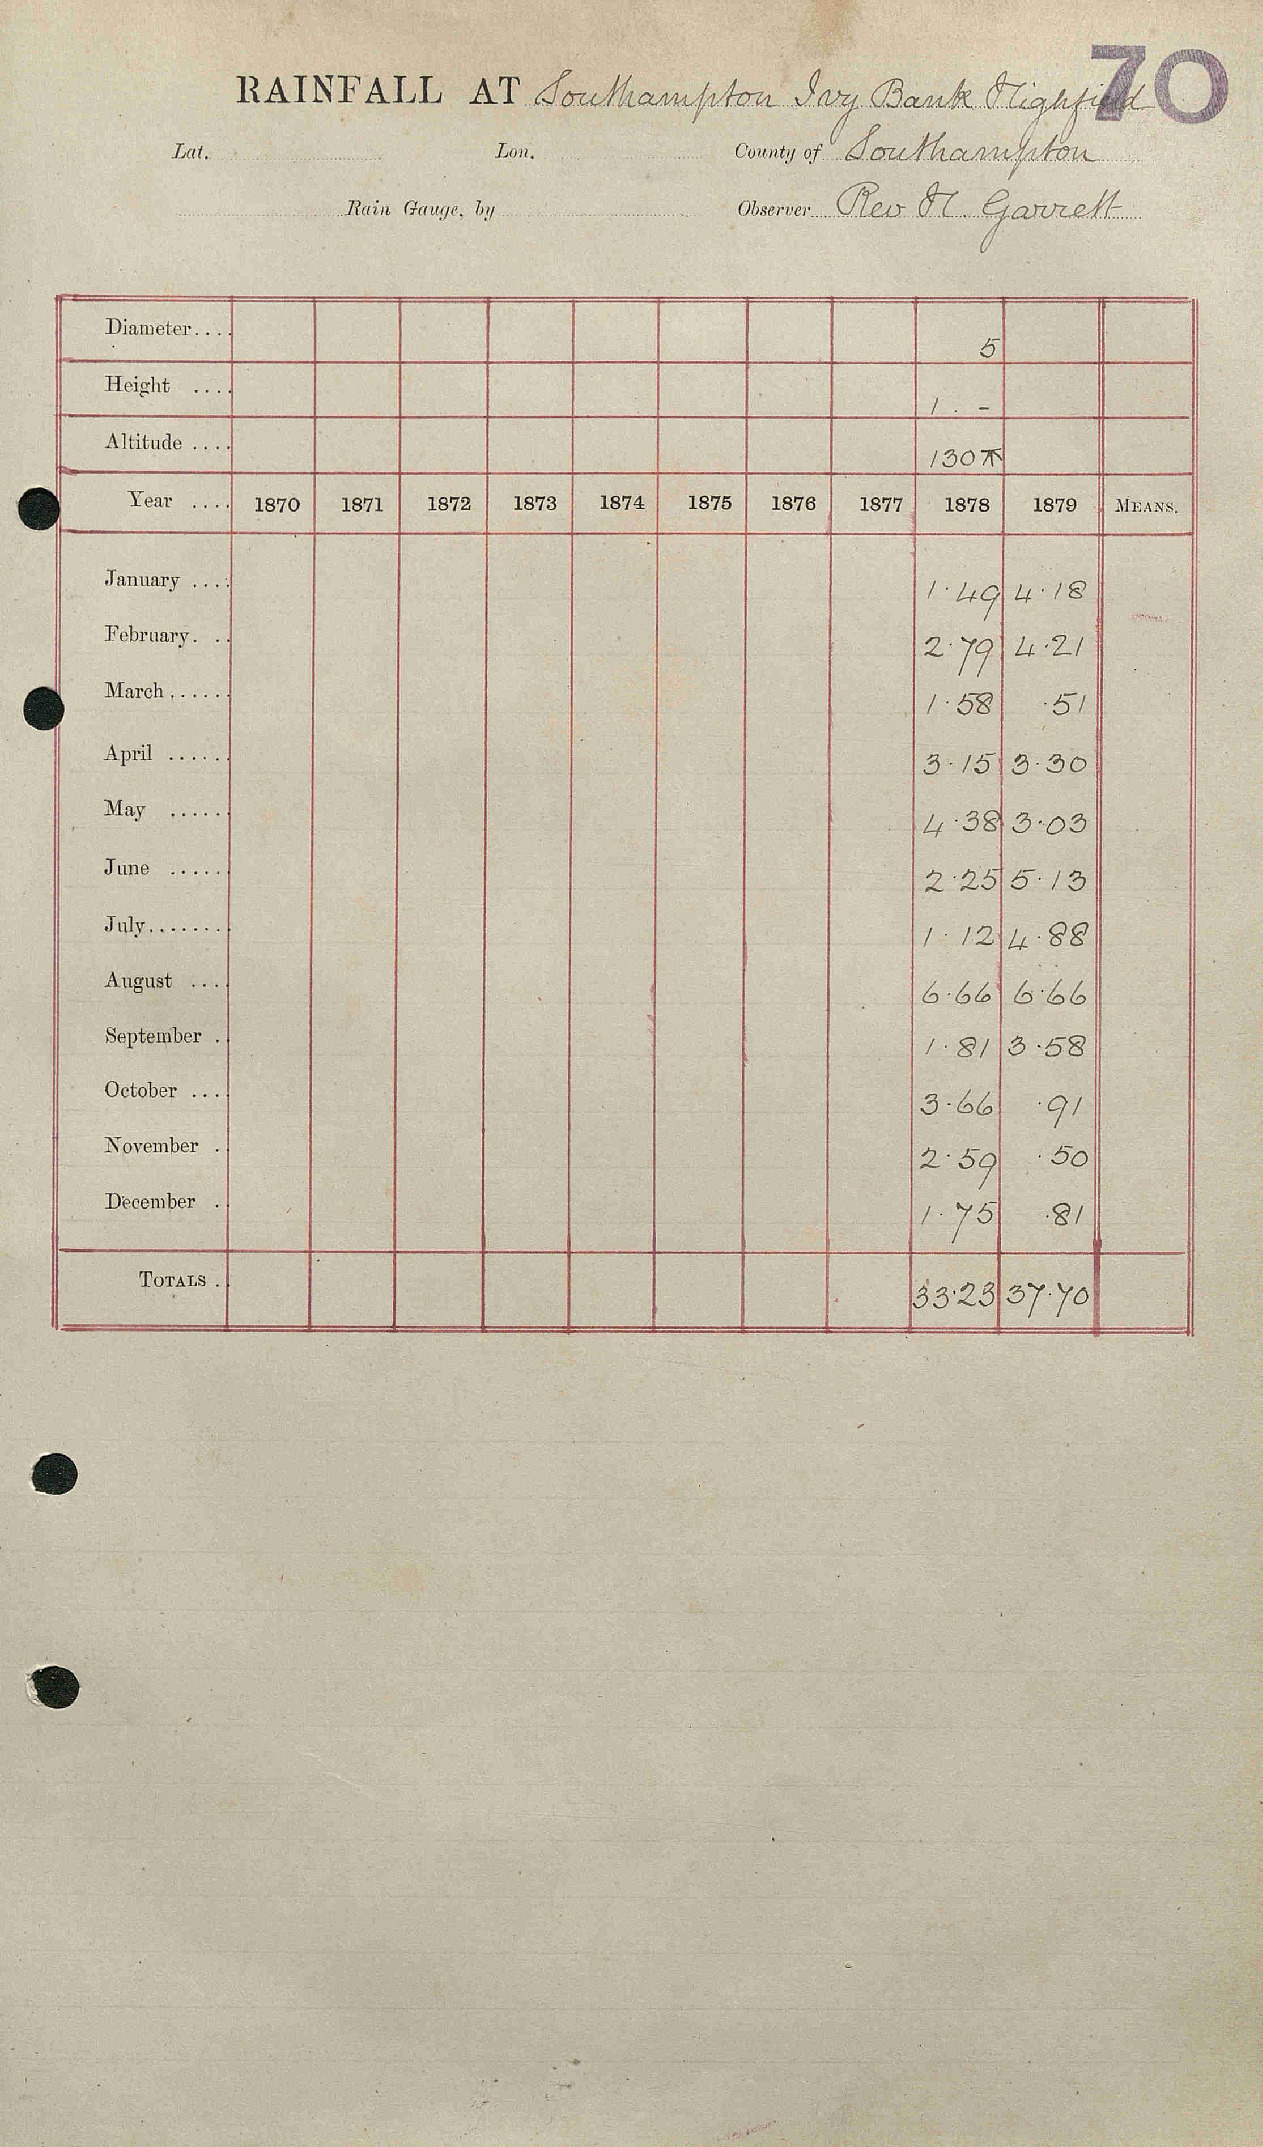 70
RAINFALL AT Southampton Ivy Bank Highfield
Lat. Lon. County of Southampton
Rain Gauge, by Observer Rev H. Garrett
Diameter.... 5
Height .... 1 . -
Altitude .... 130
Year .... 1870 1871 1872 1873 1874 1875 1876 1877 1878 1879 MEANS.
January .... 1.49 4.18
February. .. 2.79 4.21
March...... 1.58 .51
April ...... 3.15 3.30
May ...... 4.38 3.03
June ...... 2.25 5.13
July....... 1.12 4.88
August .... 6.66 6.66
September . 1.81 3.58
October .... 3.66 .91
November . 2.59 .50
December . 1.75 .81
TOTALS . 33.23 37.70